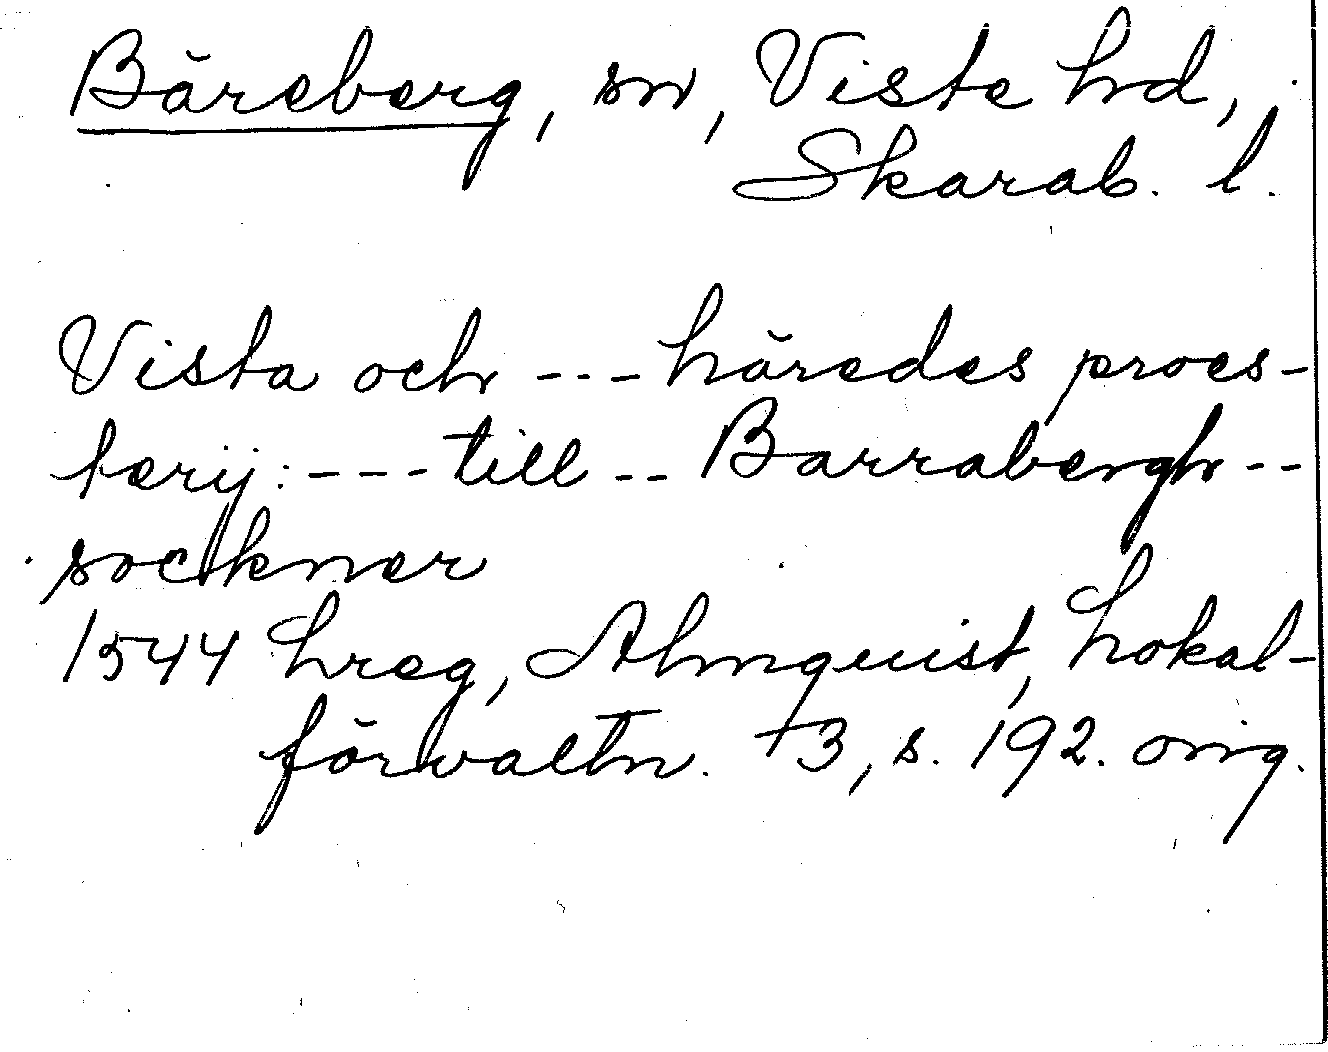 Bäreberg, sn, Viste hd,
Skarab. l.
Vista och --- häredes proes-
terij: --- till -- Barrabergh --
socknar
1544 Lreg, Almquist, Lokal-
förvaltn. +3, s. 192. orig.